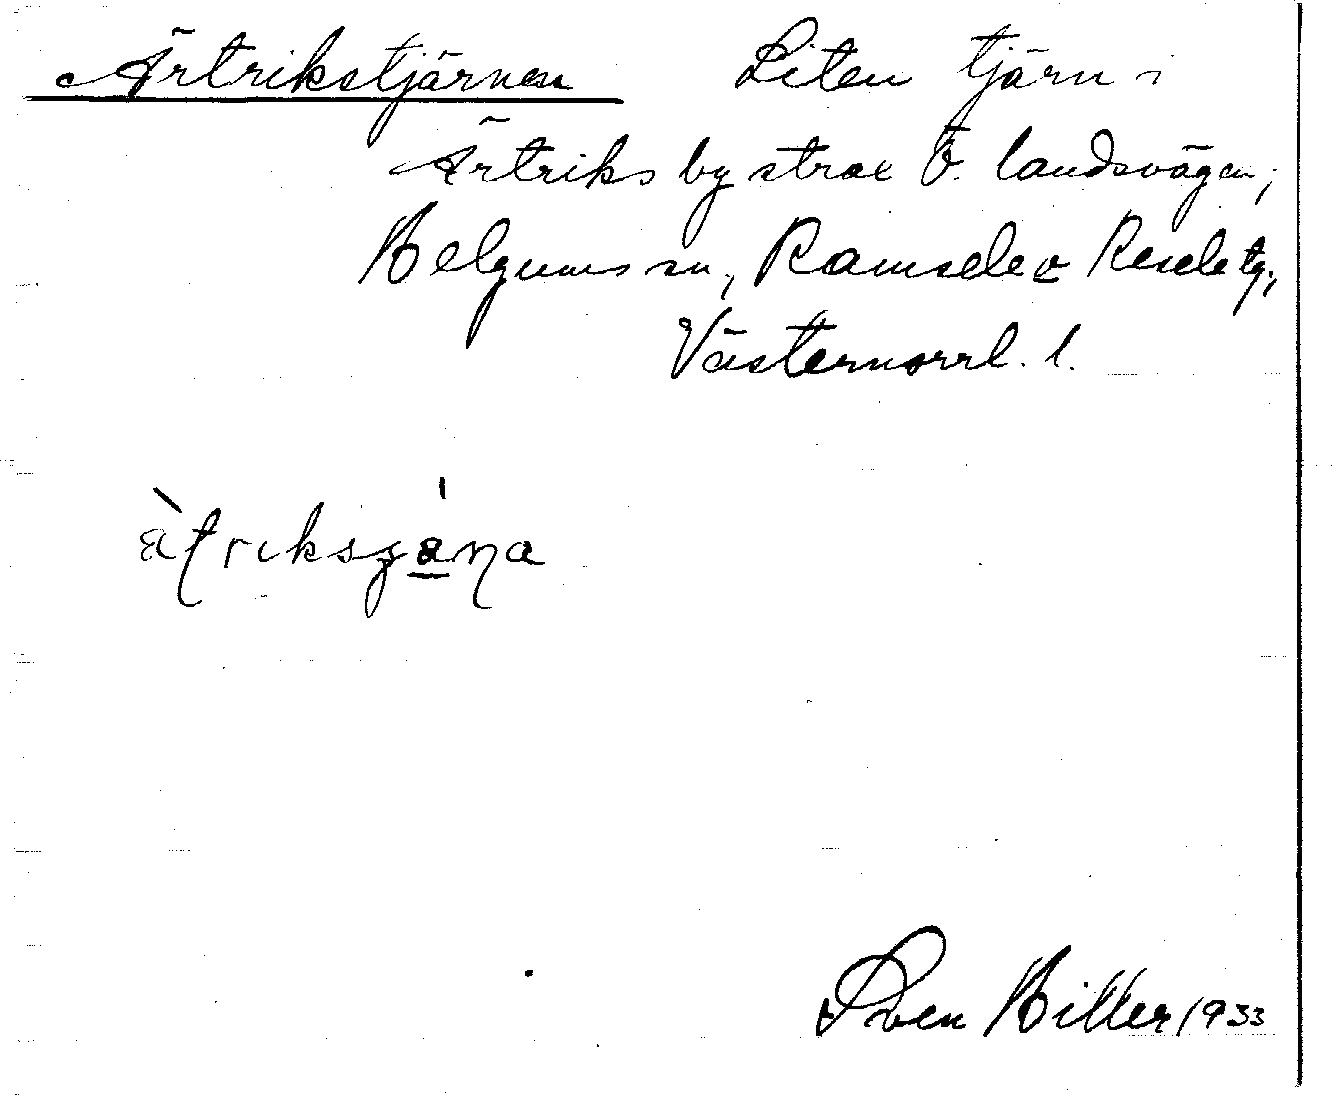 Ärtrikstjärnen Liten tjärn i
Ärtriks by strax Ö. landsvägen;
Helgums sn, Ramsele o Resele tg.,
Västernorrl. l.
Sven Hiller 1933